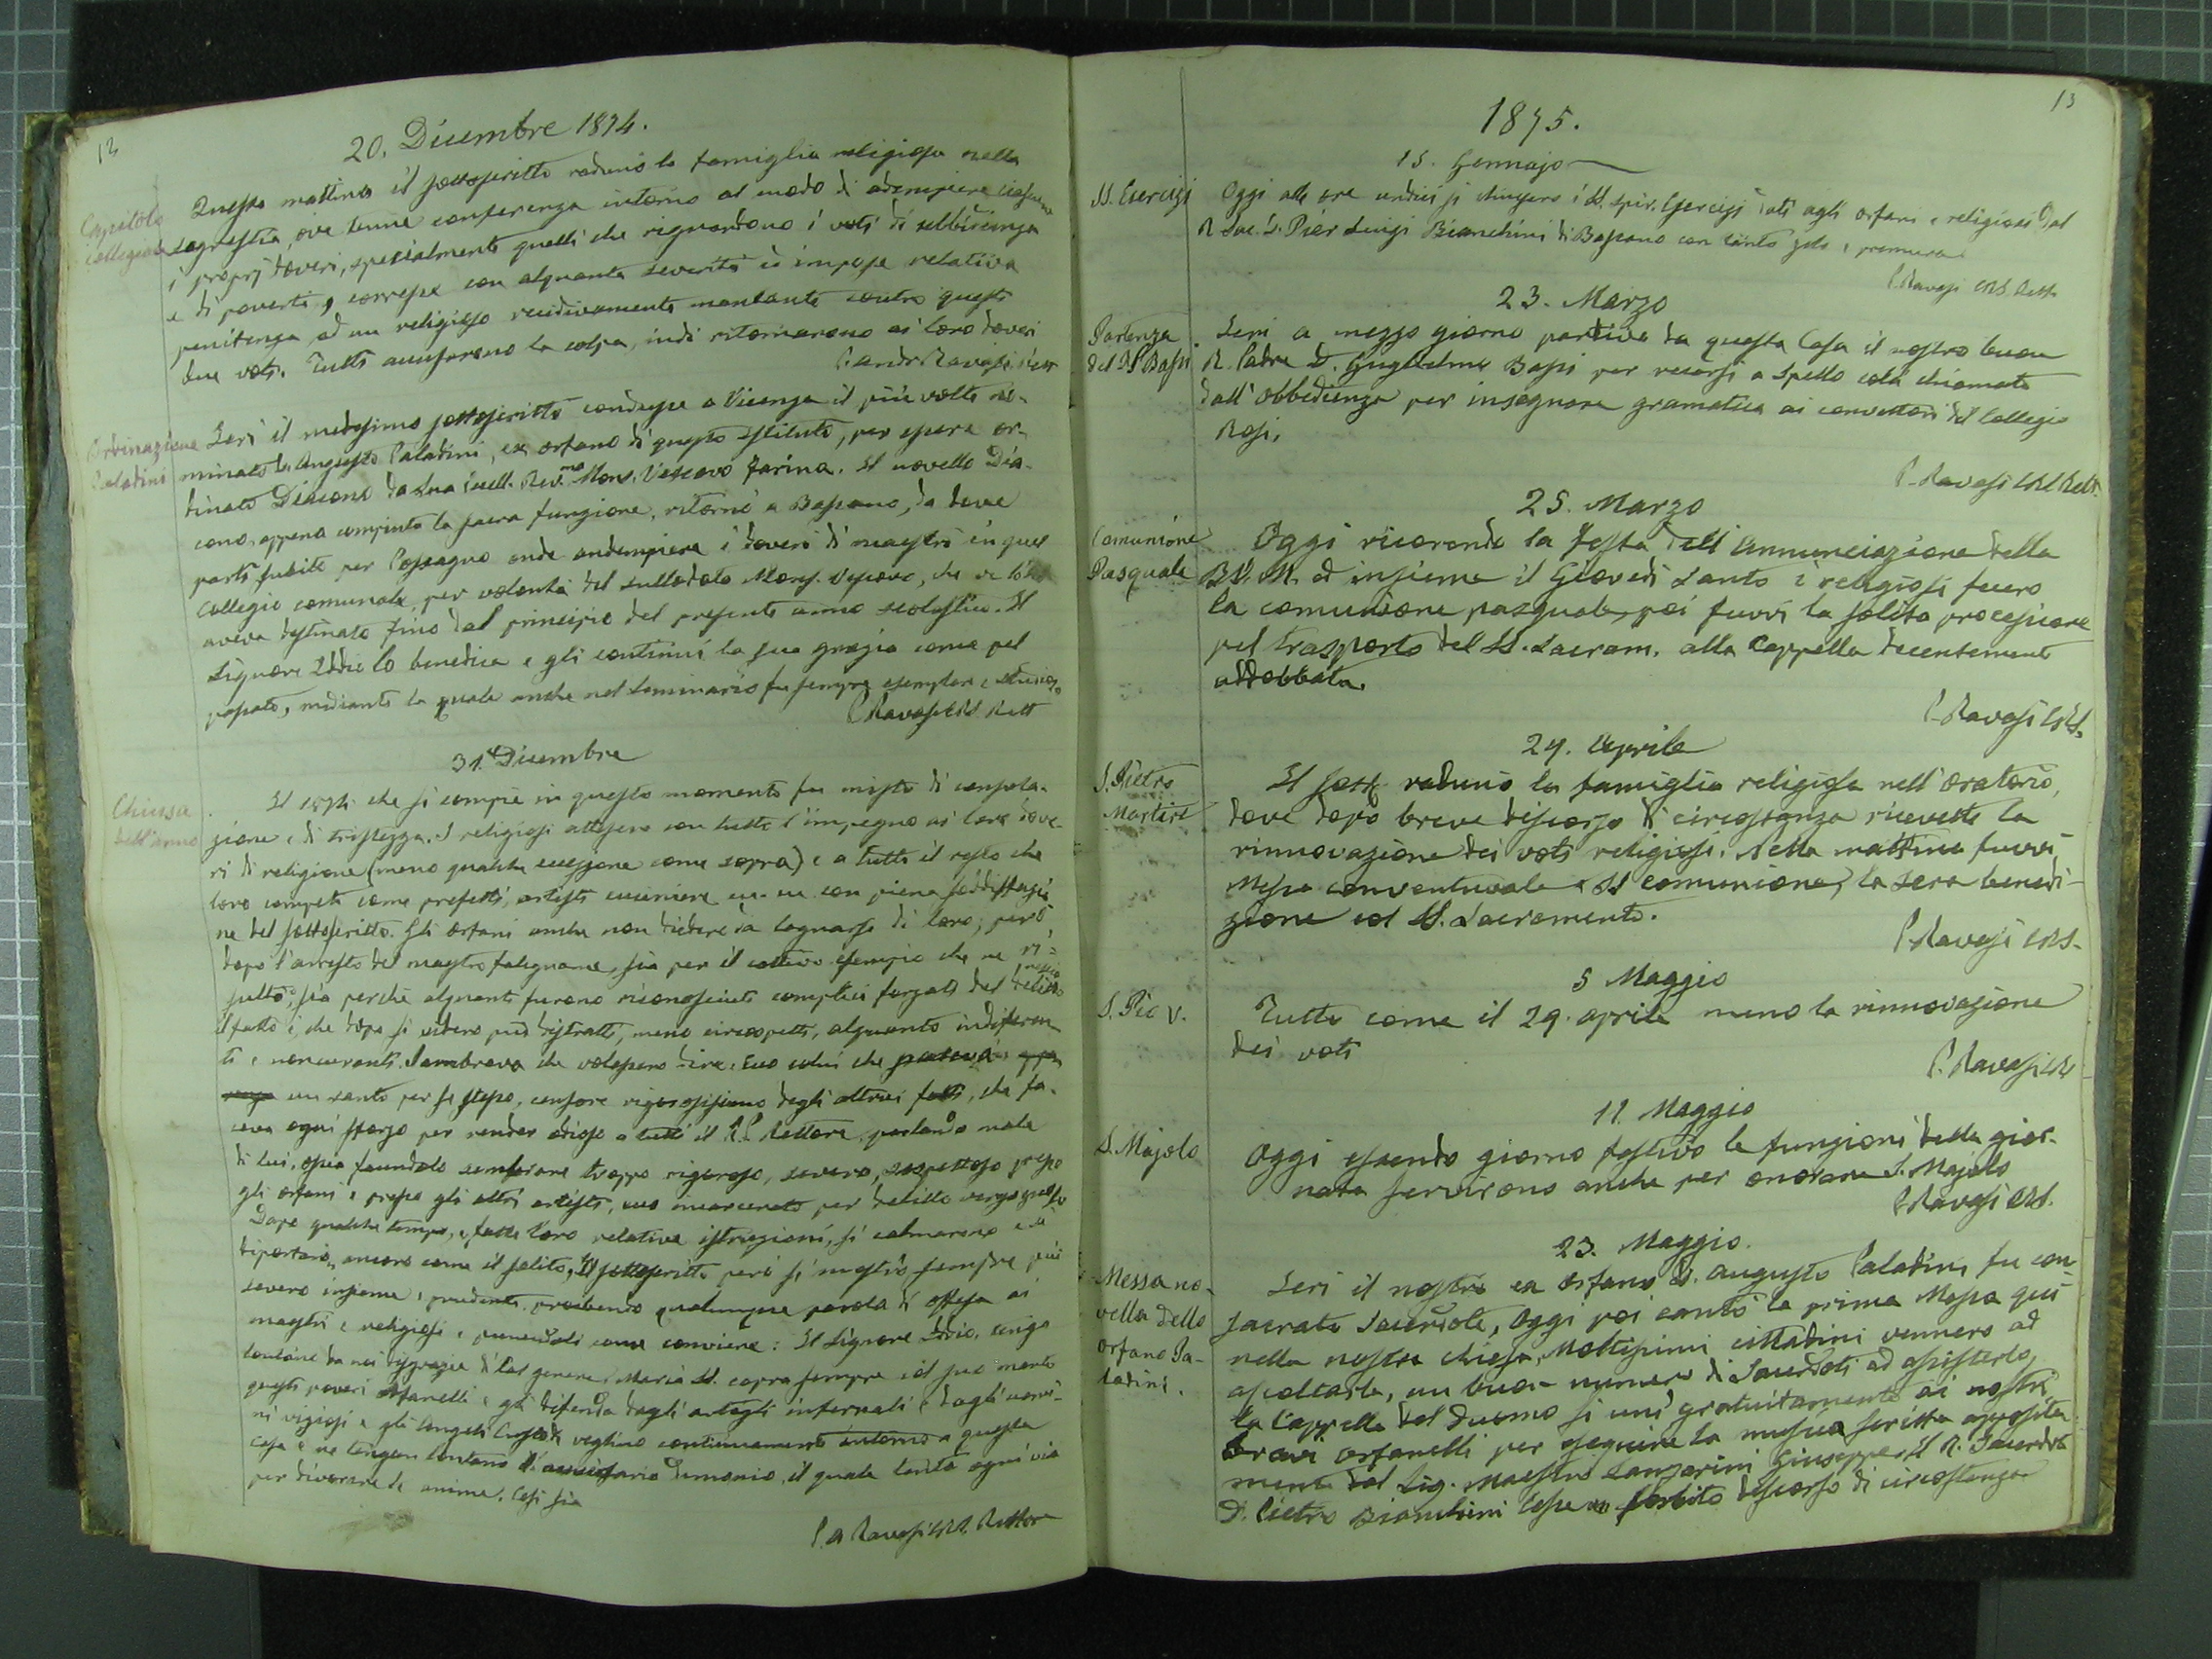 12
20. Dicembre 1874.
Capitolo
collegiale
Questa mattina il sottoscritto radunò la famiglia religiosa nella
sagrestia, ove tenne conferenza intorno al modo di adempiere ciascuno
i proprj doveri, specialmente quelli che riguardono i voti di ubbidienza
e di povertà, corresse con alquanta severità ed impose relativa
penitenza ad un religioso recidivamente mancante contro questi
due voti. Tutti accusarono la colpa, indi ritornarono ai loro doveri
P. Andr. Ravasi Rett
Ordinazione
Paladini
Jeri il medesimo sottoscritto condusse a Vicenza il più volte no-
minato D. Augusto Paladini, ex orfano di questo istituto, per essere or-
dinato Diacono da Sua Eccell. Rev.ma Mons. Vescovo Farina. Il novello Dia-
cono, appena compiuta la sacra funzione, ritornò a Bassano, da dove
partì subito per Possagno onde andempiere i doveri di maestro in quel
collegio comunale per volontà del sullodato Mons. Vescovo, che ve lo
aveva destinato fino dal principio del presente anno scolastico. Il
Signore Iddio lo benedica e gli continui la sua grazia come pel
passato, mediante la quale anche nel Seminario fu sempre esemplare e studioso
P. Ravasi CRS Rett
31. Dicembre
Chiusa
dell'anno
Il che si compie in questo momento fu misto di consola-
zione e di tristezza. I religiosi attesero con tutto l'impegno ai loro dove-
ri di religione (meno qualche eccezione come sopra) e a tutto il resto che
loro compete come prefetti, artisti cuciniere ec. ec. con piena soddisfazio
ne del sottoscritto. Gli orfani anche non diedero da lagnarsi di loro; però
dopo l'arresto del maestro falegname, sia per il cattivo esempio che ne ri=
sultò, sia perchè alquanti furono riconosciuti complici forzati del delitto
il fatto è, che dopo si videro più distratti, meno circospetti, alquanto indiferen
ti e noncuranti. Sembrava che volessero dire: Ecco colui che pareva
un santo per se stesso, censore rigorosissimo degli altrui fatti, che fa-
ceva ogni sforzo per render odioso a tutti il R. P. Rettore parlando male
di lui, ossia facendolo sembrare troppo rigoroso, severo, sospettoso presso
gli orfani e presso gli altri artisti, ecco incarcerato per delitto vergognoso
Dopo qualche tempo, e fatte loro relative istruzioni, si calmarono e si
diportano, ancora come il solito, Il sottoscritto però si mostrò sempre più
severo insieme e prudente proibendo qualunque parola di offesa ai
maestri e religiosi e punendoli come conviene: Il Signore Iddio tenga
lontane da noi disgrazie di tal genere: Maria SS. copra sempre col suo manto
questi poveri orfanelli e gli difenda dagli artigli infernali e dagli uomi-
ni viziosi e gli Angeli Custodi veglino continuamente intorno a questa
casa e ne tengan lontano l'avversario Demonio, il quale tenta ogni via
per divorare le anime. Così sia
P. A Ravasi CRS. Rettore
13
1875.
15. Gennajo
SS. Esercizj
Oggi alle ore undici si chiusero i SS. spir. Esercizj dati agli orfani e religiosi dal
R Sac. D. Pier Luigi Bianchini di Bassano con tanto zelo e premura
P. Ravasi CRS. Rett.
23. Marzo
Partenza
del P. Bassi
Jeri a mezzo giorno partiva da questa Casa il nostro buon
R. Padre D. Guglielmo Bassi per recarsi a Spello colà chiamato
dall'obbedienza per insegnare gramatica ai convittori del Collegio
Rosi.
P. Ravasi CRS Rett.
25. Marzo
Comunione
Pasquale
Oggi ricorrendo la Festa dell'Annunciazione della
B.V.M. ed insieme il Giovedì Santo i religiosi fecero
la comunione pasquale, poi fuvvi la solita processione
pel trasporto del SS. Sacram. alla Cappella decentemente
addobbata.
P. Ravasi CRS.
29. Aprile
S. Pietro
Martire
Il sott. radunò la famiglia religiosa nell'oratorio,
dove dopo breve discorso di circostanza ricevette la
rinnovazione dei voti religiosi. Nella mattina fuvvi
Messa conventuale e SS comunione, la sera benedi-
zione col SS. Sacramento.
P. Ravasi CRS.
5 Maggio
S. Pio V.
Tutto come il 29. aprile meno la rinnovazione
dei voti
P. Ravasi CRS
11. Maggio
S. Majolo
Oggi essendo giorno festivo le funzioni della gior-
nata servirono anche per onorare S. Majolo
P. Ravasi CRS.
23. Maggio.
Messa no-
vella dello
orfano Pa-
ladini.
Jeri il nostro ex orfano D. Augusto Paladini fu con
sacrato Sacerdote, Oggi poi cantò la prima Messa qui
nella nostra chiesa, Moltissimi cittadini vennero ad
ascoltarla, un buon numero di Sacerdoti ad assisterlo,
la Cappella del Duomo si unì gratuitamente ai nostri
bravi orfanelli per eseguire la musica scritta apposita
mente dal Sig. Maestro Lanzarini Giuseppe, il R. Sacerdote
D. Pietro Bianchini lesse un forbito discorso di circostanza